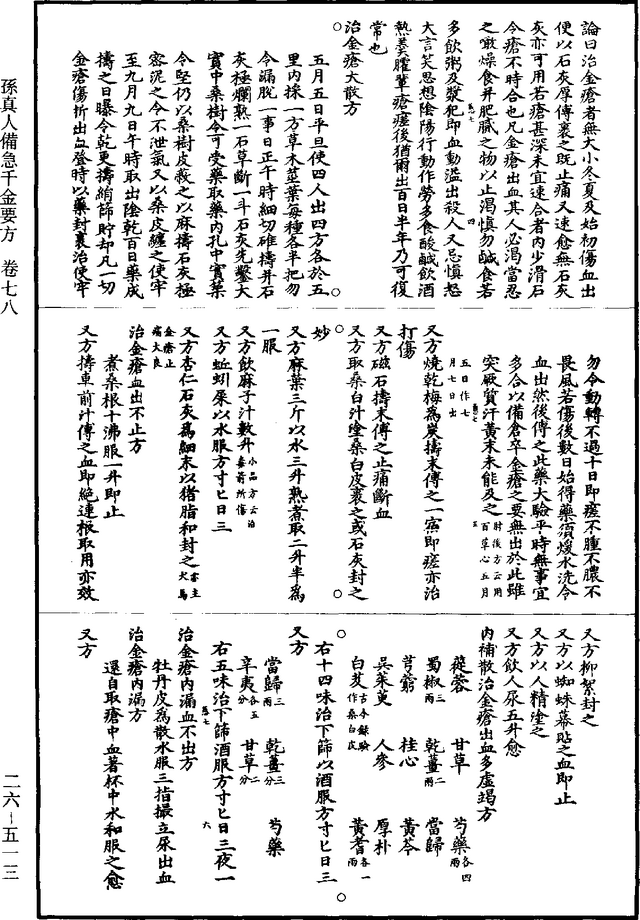 孫真人備急千金要方 卷七八
論曰治金瘡者無大小冬夏及始初傷血出
便以石灰厚傅裹之既止痛又速愈無石灰
灰亦可用若瘡甚深未宜速合者内少滑石
令瘡不時合也凡金瘡出血其人必渴當忍
之噉燥食并肥膩之物以止渴慎勿鹹食若
多飲粥及漿犯即血動溢出殺人又忌慎怒
大言笑思想陰陽行動作勞多食酸鹹飲酒
熱羹臛輩瘡瘥後猶爾出百日半年乃可復
常也
治金瘡大散方
五月五日平旦使四人出四方各於五
里内採一方草木莖葉每種各半把勿
令漏脫一事日正午時細切碓擣并石
灰極爛熟一石草斷一斗石灰先鑿大
實中桑樹令可受藥取藥内孔中實築
令堅仍以桑樹皮蔽之以麻擣石灰極
密泥之令不泄氣又以桑皮纏之使牢
至九月九日午時取出陰乾百日藥成
擣之日曝令乾更擣絹篩貯却凡一切
金瘡傷折出血登時以藥封裹治使牢
勿令動轉不過十日即瘥不腫不膿不
畏風若傷後數日始得藥須煖水洗令
血出然後傅之此藥大驗平時無事宜
多合以備倉卒金瘡之要無出於此雖
突厥質汗黃末未能及之 肘後方云用百草心五月
五日作七月七日出
又方燒乾梅為炭擣末傅之一宿即瘥亦治
打傷
又方磁石擣末傅之止痛斷血
又方取桑白汁塗桑白皮裹之或石灰封之
妙
又方麻葉三斤以水三升熟煮取二升半為
一服
又方飲麻子汁數升 小品方云治毒箭所傷
又方蚯蚓屎以水服方寸匕日三
又方杏仁石灰為細末以猪脂和封之 亦主犬馬
金瘡止痛大良
治金瘡血出不止方
煮桑根十沸服一升即止
又方擣車前汁傅之血即絕連根取用亦效
又方柳絮封之
又方以蜘蛛幕貼之血即止
又方以人精塗之
又方飲人尿五升愈
内補散治金瘡出血多虛竭方
蓯蓉 甘草 芍藥各四兩
蜀椒三兩 乾薑二兩 當歸
芎藭 桂心 黃芩
吳茱萸 人參 厚朴
白芨古今錄驗作桑白皮 黃耆各一兩
右十四味治下篩以酒服方寸匕日三
又方
當歸三兩 乾薑三分 芍藥
辛夷各五分 甘草二分
右五味治下篩酒服方寸匕日三夜一
治金瘡内漏血不出方
牡丹皮為散水服三指撮立尿出血
治金瘡内漏方
還自取瘡中血著杯中水和服之愈
又方
二六-五一三